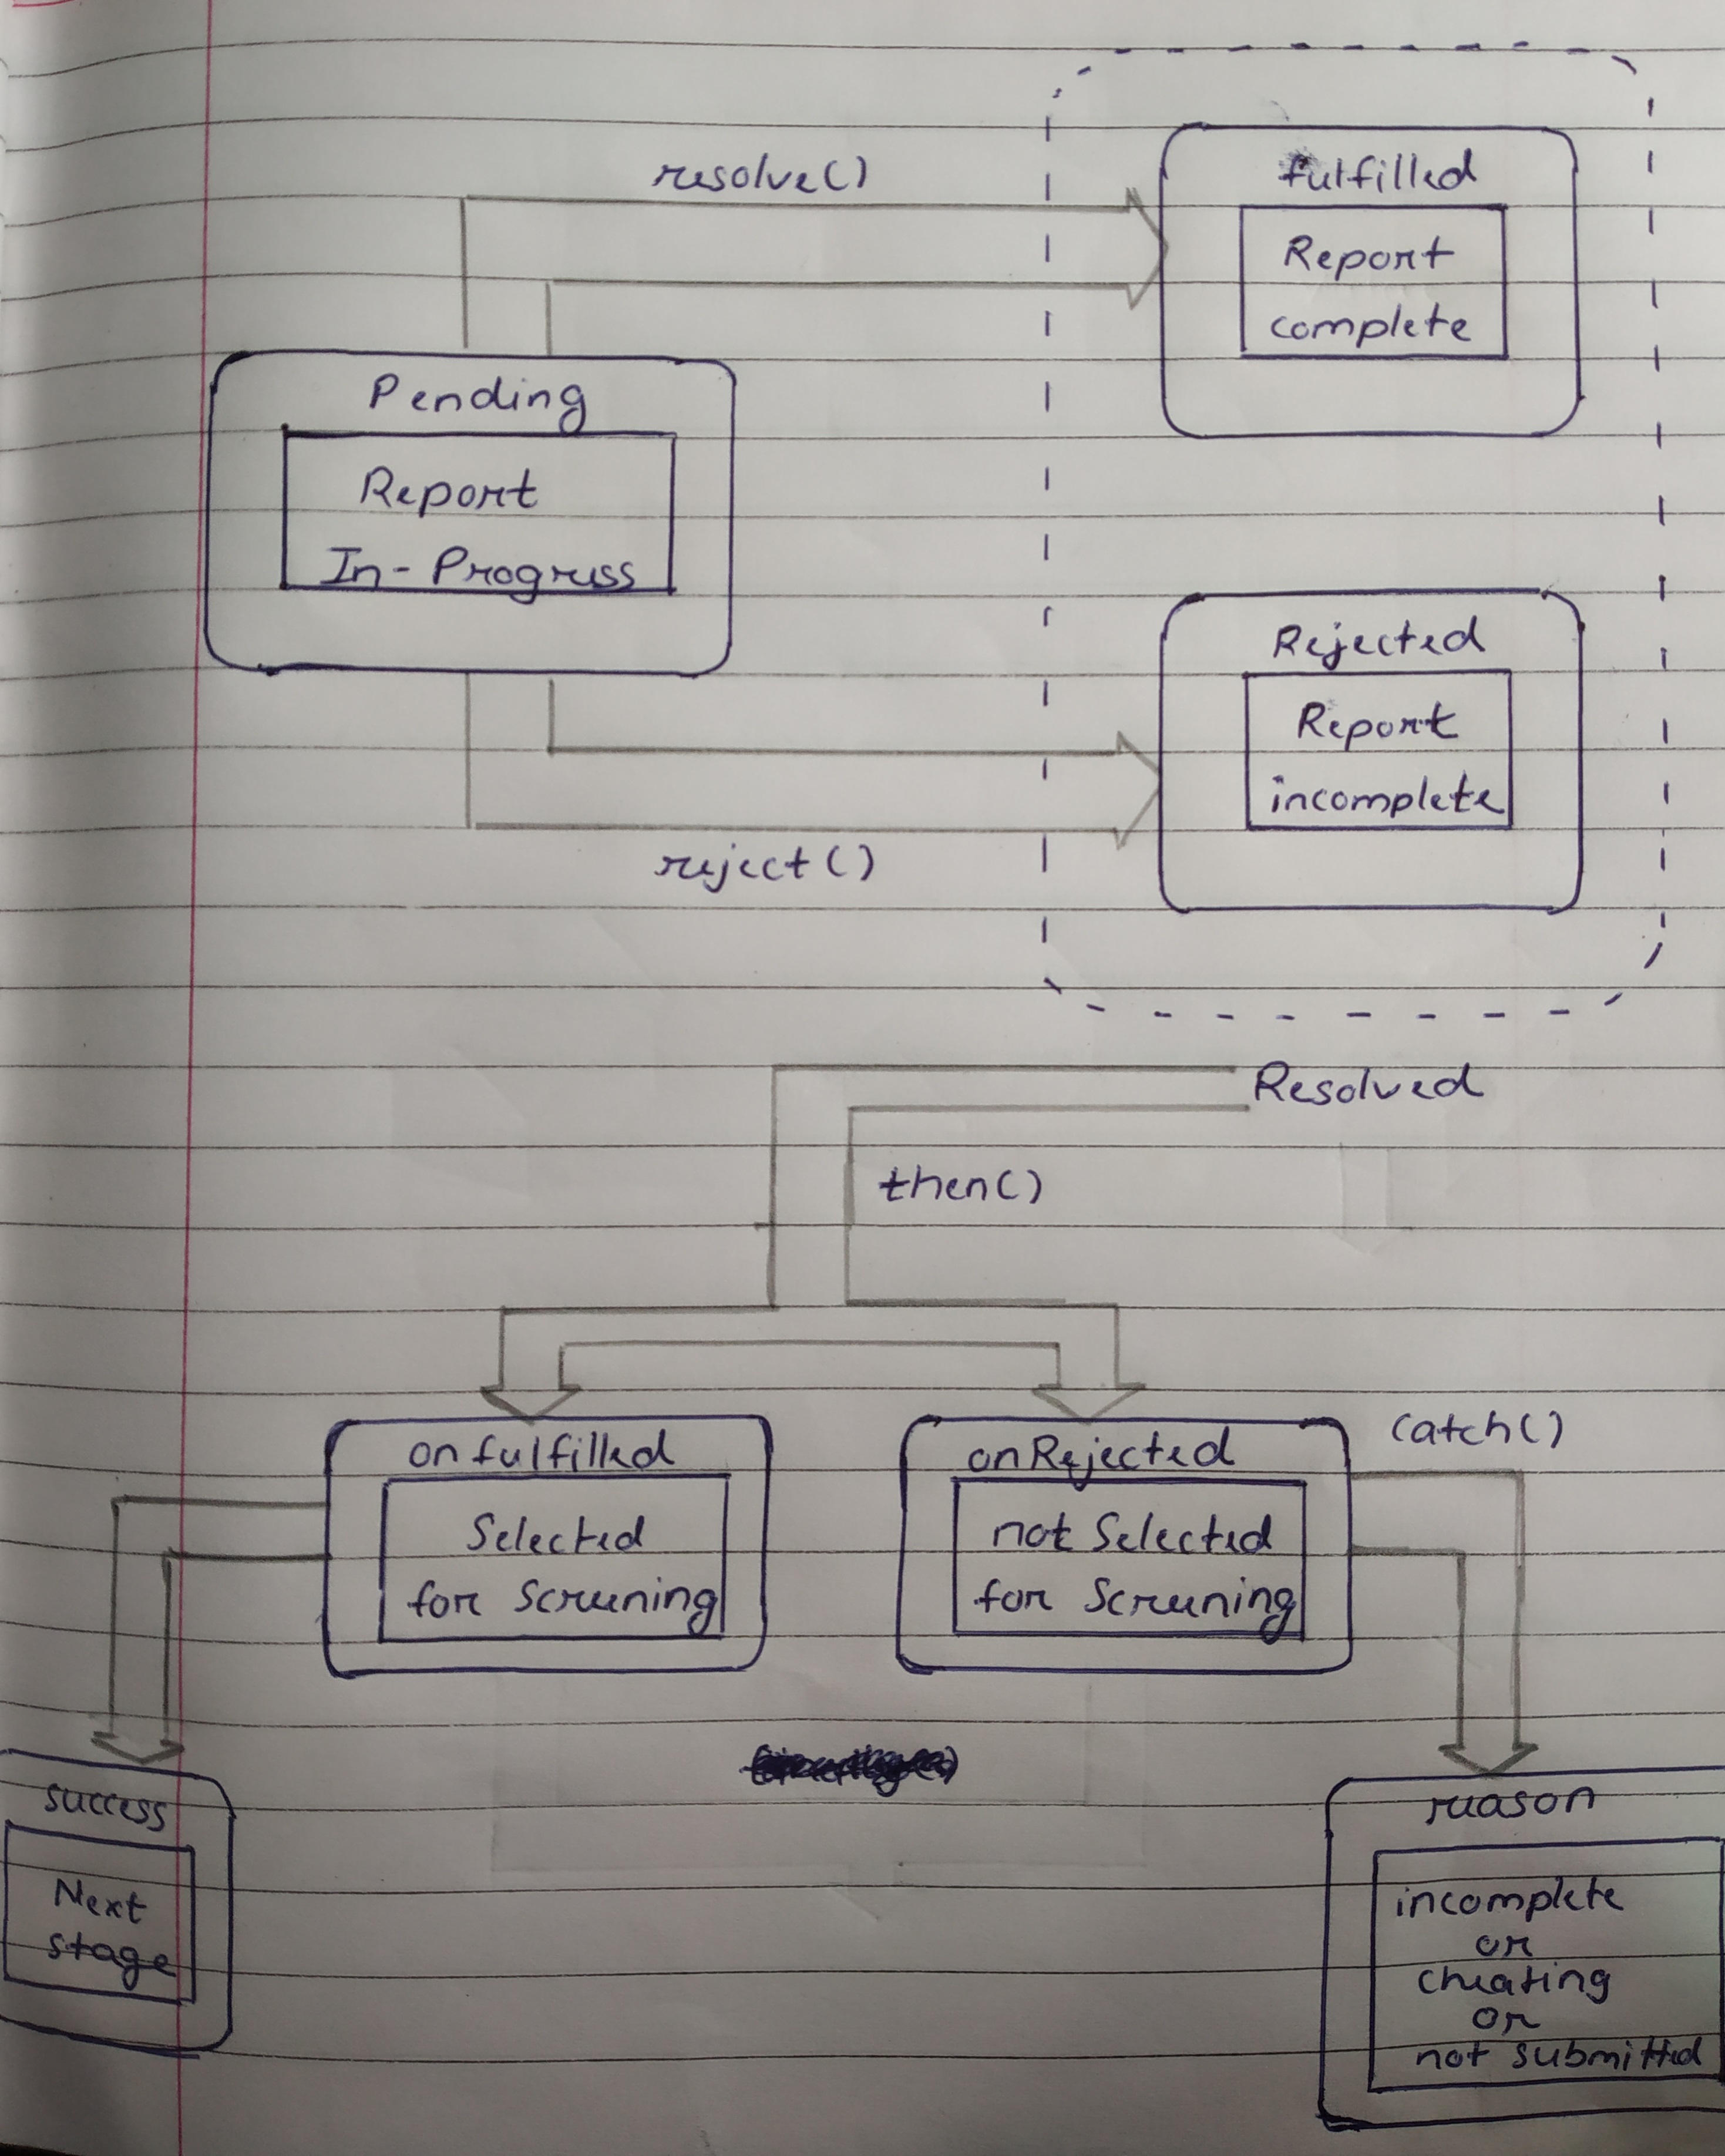 resolve()
fulfilled
Report
complete
Pending
Report
In-Progress
Rejected
Report
incomplete
reject()
Resolved
then()
onfulfilled
Selected
for Screening
onRejected
not Selected
for Screening
catch()
success
Next
stage
reason
incomplete
or
cheating
or
not submitted